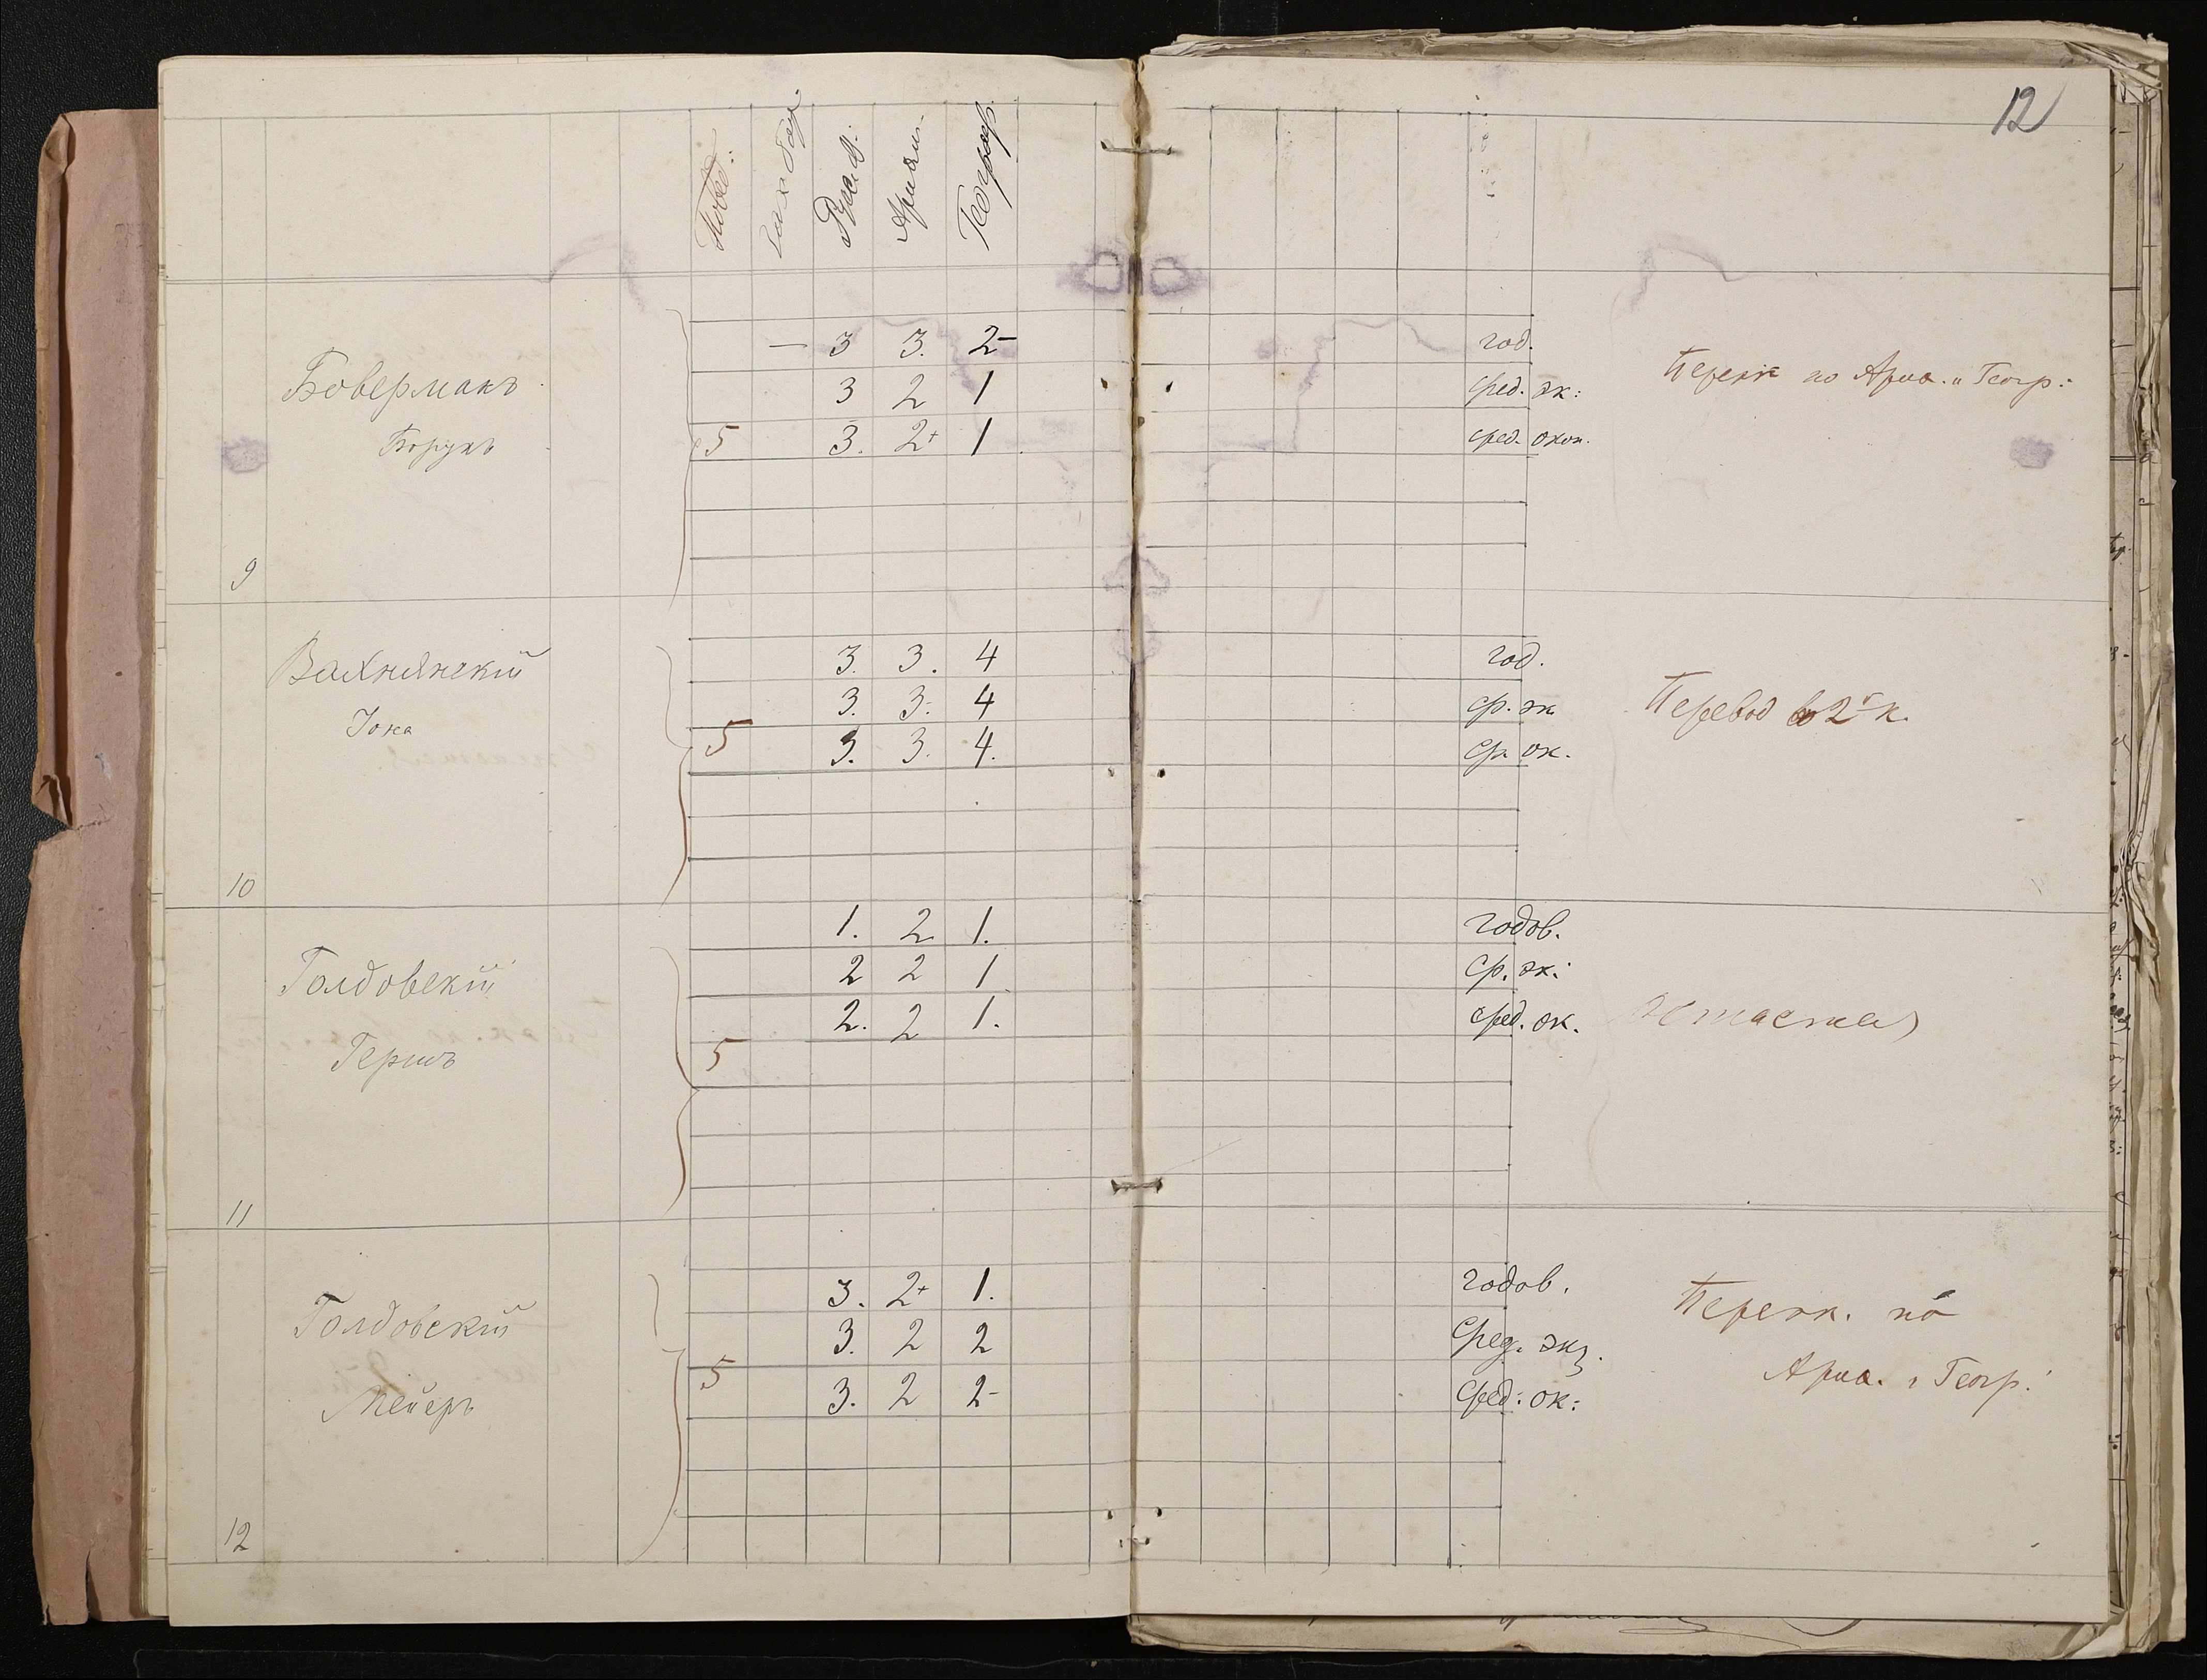 12
Повед: Зак. Русск. Арием. Географ.
— 3 3. 2- год.
Боверманъ 3 2 1 сред. эк: Перэк по Ариѳ. и Геогр:
Борухъ 5 3. 2+ 1 сред. окон.
9
Вахнянскій 3. 3. 4 год.
Іона 3. 3. 4 ср. эк Перевод во 2й к.
5 3. 3. 4. ср ок.
10
1. 2 1. годов.
Голдовскій 2 2 1 ср. эк:
2. 2 1. сред. ок. Остается
Гершъ 5
11
3. 2+ 1. годов. Перэк. по
Голдовскій 3. 2 2 Сред. экз.
Мейеръ 5 3. 2 2- Сред: ок: Ариѳ. и Геогр.
12